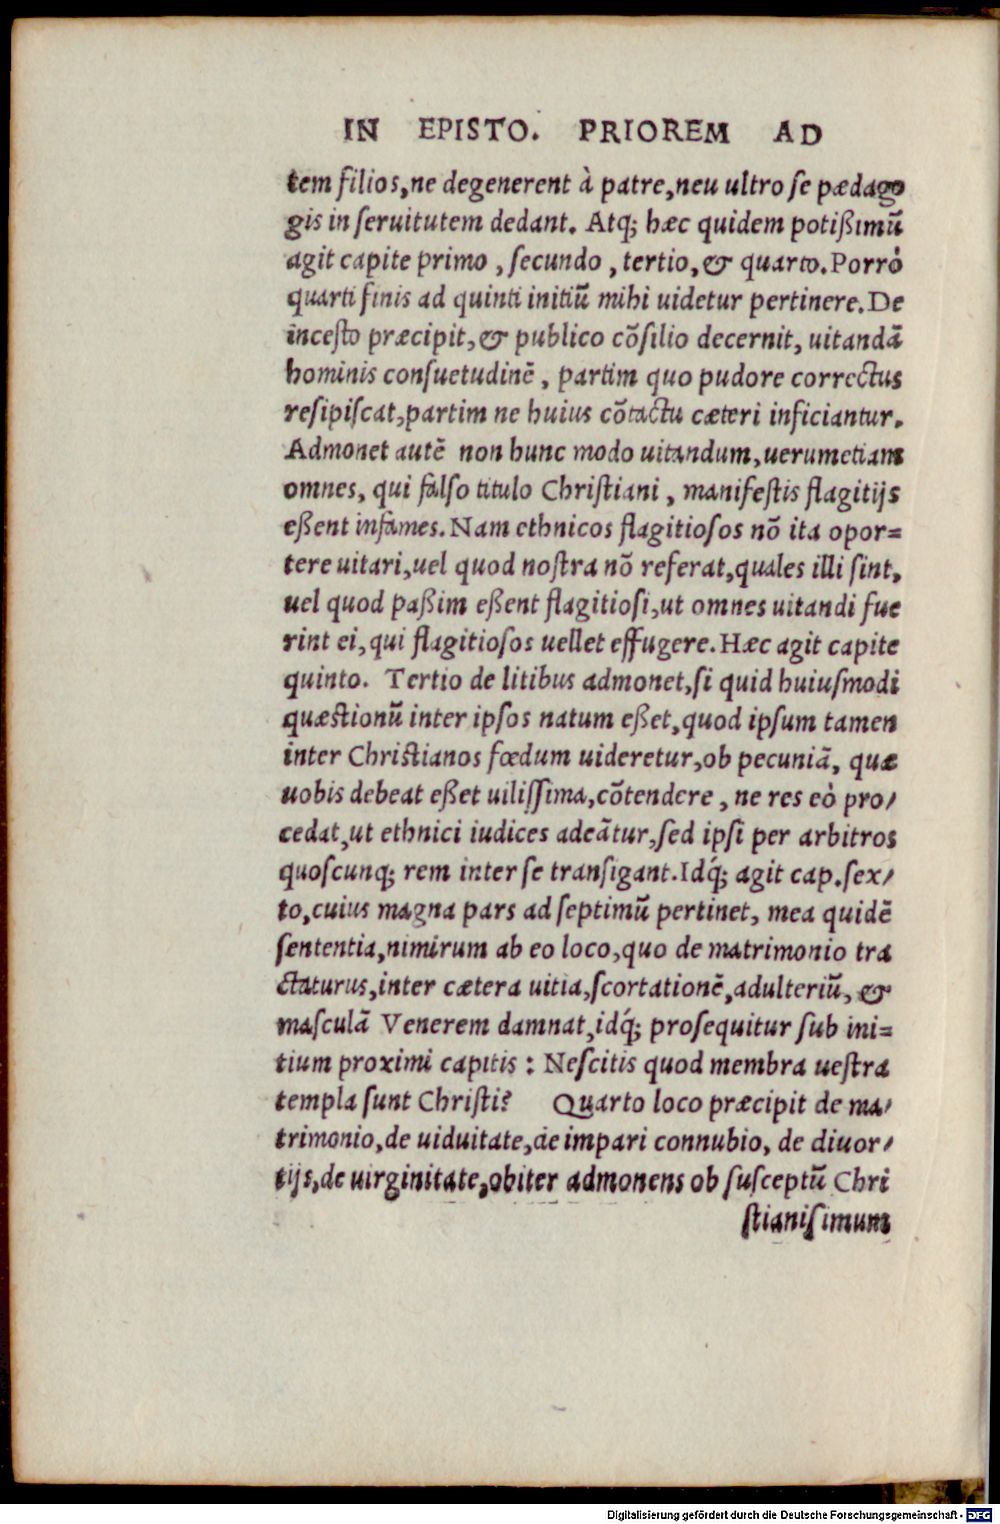 IN EPISTO. PRIOREM AD
tem filios, ne degenerent à patre, neu ultro se pædago
gis in seruitutem dedant. Atq; hæc quidem potißimũ
agit capite primo, secundo, tertio, & quarto. Porrò
quarti finis ad quinti initiũ mihi uidetur pertinere. De
incesto præcipit, & publico cõsilio decernit, uitandã
hominis consuetudinẽ, partim quo pudore correctus
resipiscat, partim ne huius cõtactu cæteri inficiantur.
Admonet autẽ non hunc modo uitandum, uerumetiam
omnes, qui falso titulo Christiani, manifestis flagitijs
eßent infames. Nam ethnicos flagitiosos nõ ita opor=
tere uitari, uel quod nostra nõ referat, quales illi sint,
uel quod paßim eßent flagitiosi, ut omnes uitandi fue
rint ei, qui flagitiosos uellet effugere. Hæc agit capite
quinto. Tertio de litibus admonet, si quid huiusmodi
quæstionũ inter ipsos natum eßet, quod ipsum tamen
inter Christianos fœdum uideretur, ob pecuniã, quæ
uobis debeat eßet uilissima, cõtendere, ne res eò pro/
cedat, ut ethnici iudices adeãtur, sed ipsi per arbitros
quoscunq; rem inter se transigant. Idq́; agit cap. sex/
to, cuius magna pars ad septimũ pertinet, mea quidẽ
sententia, nimirum ab eo loco, quo de matrimonio tra
ctaturus, inter cætera uitia, scortationẽ, adulteriũ, &
masculã Venerem damnat, idq́; prosequitur sub ini=
tium proximi capitis : Nescitis quod membra uestra
templa sunt Christi? Quarto loco præcipit de ma/
trimonio, de uiduitate, de impari connubio, de diuor/
tijs, de uirginitate, obiter admonens ob susceptũ Chri
stianisimum
Digitalisierung gefördert durch die Deutsche Forschungsgemeinschaft - DFG